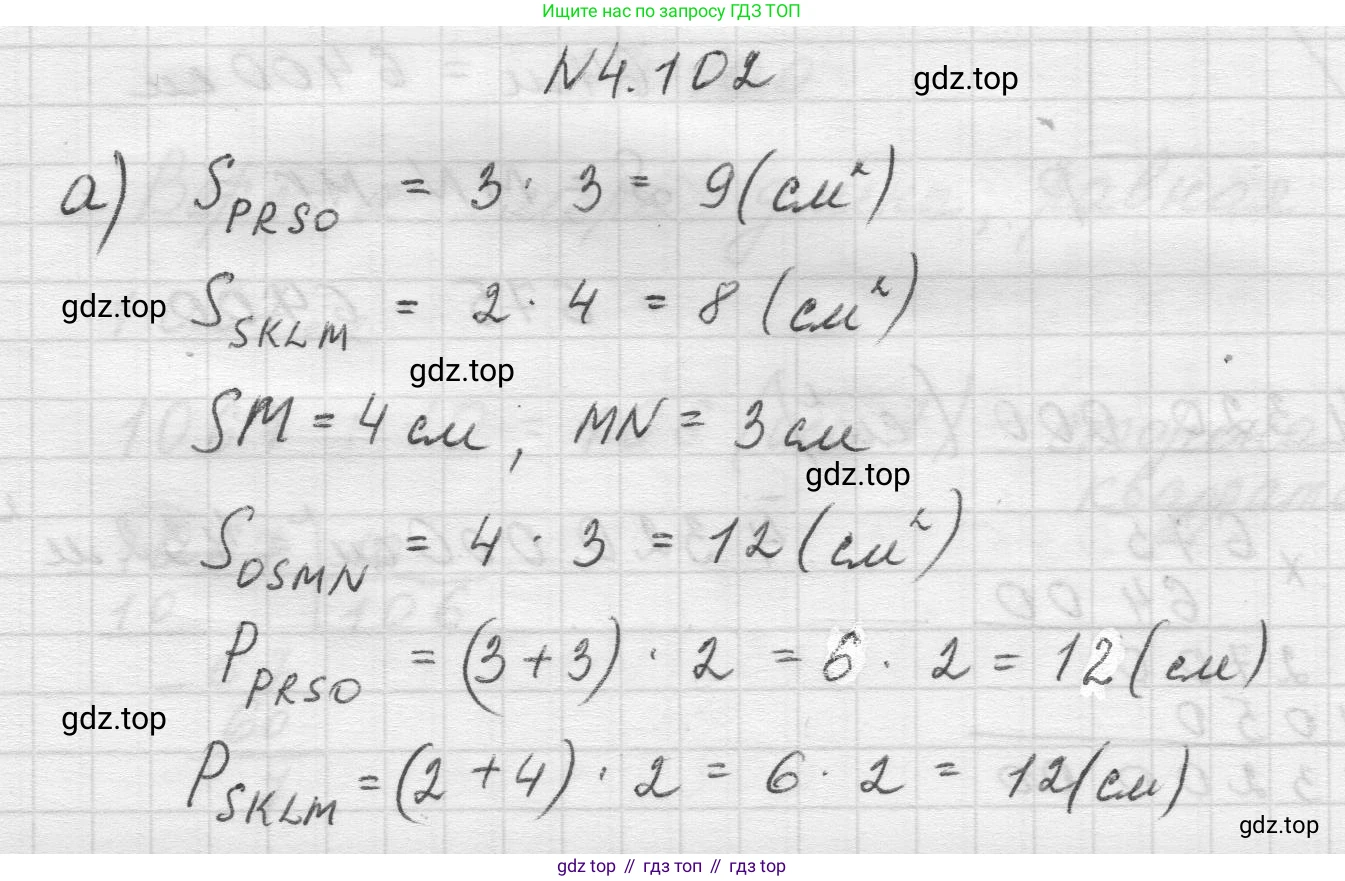 Ищите нас по запросу ГДЗ ТОП
N4.102
gdz.top
а) S PRSO = 3 · 3 = 9 (см²)
gdz.top
S SKLM = 2 · 4 = 8 (см²)
gdz.top
SM = 4 см, MN = 3 см
gdz.top
S OSMN = 4 · 3 = 12 (см²)
P PRSO = (3 + 3) · 2 = 6 · 2 = 12 (см)
gdz.top
P SKLM = (2 + 4) · 2 = 6 · 2 = 12 (см)
gdz.top
gdz top // гдз топ // гдз top